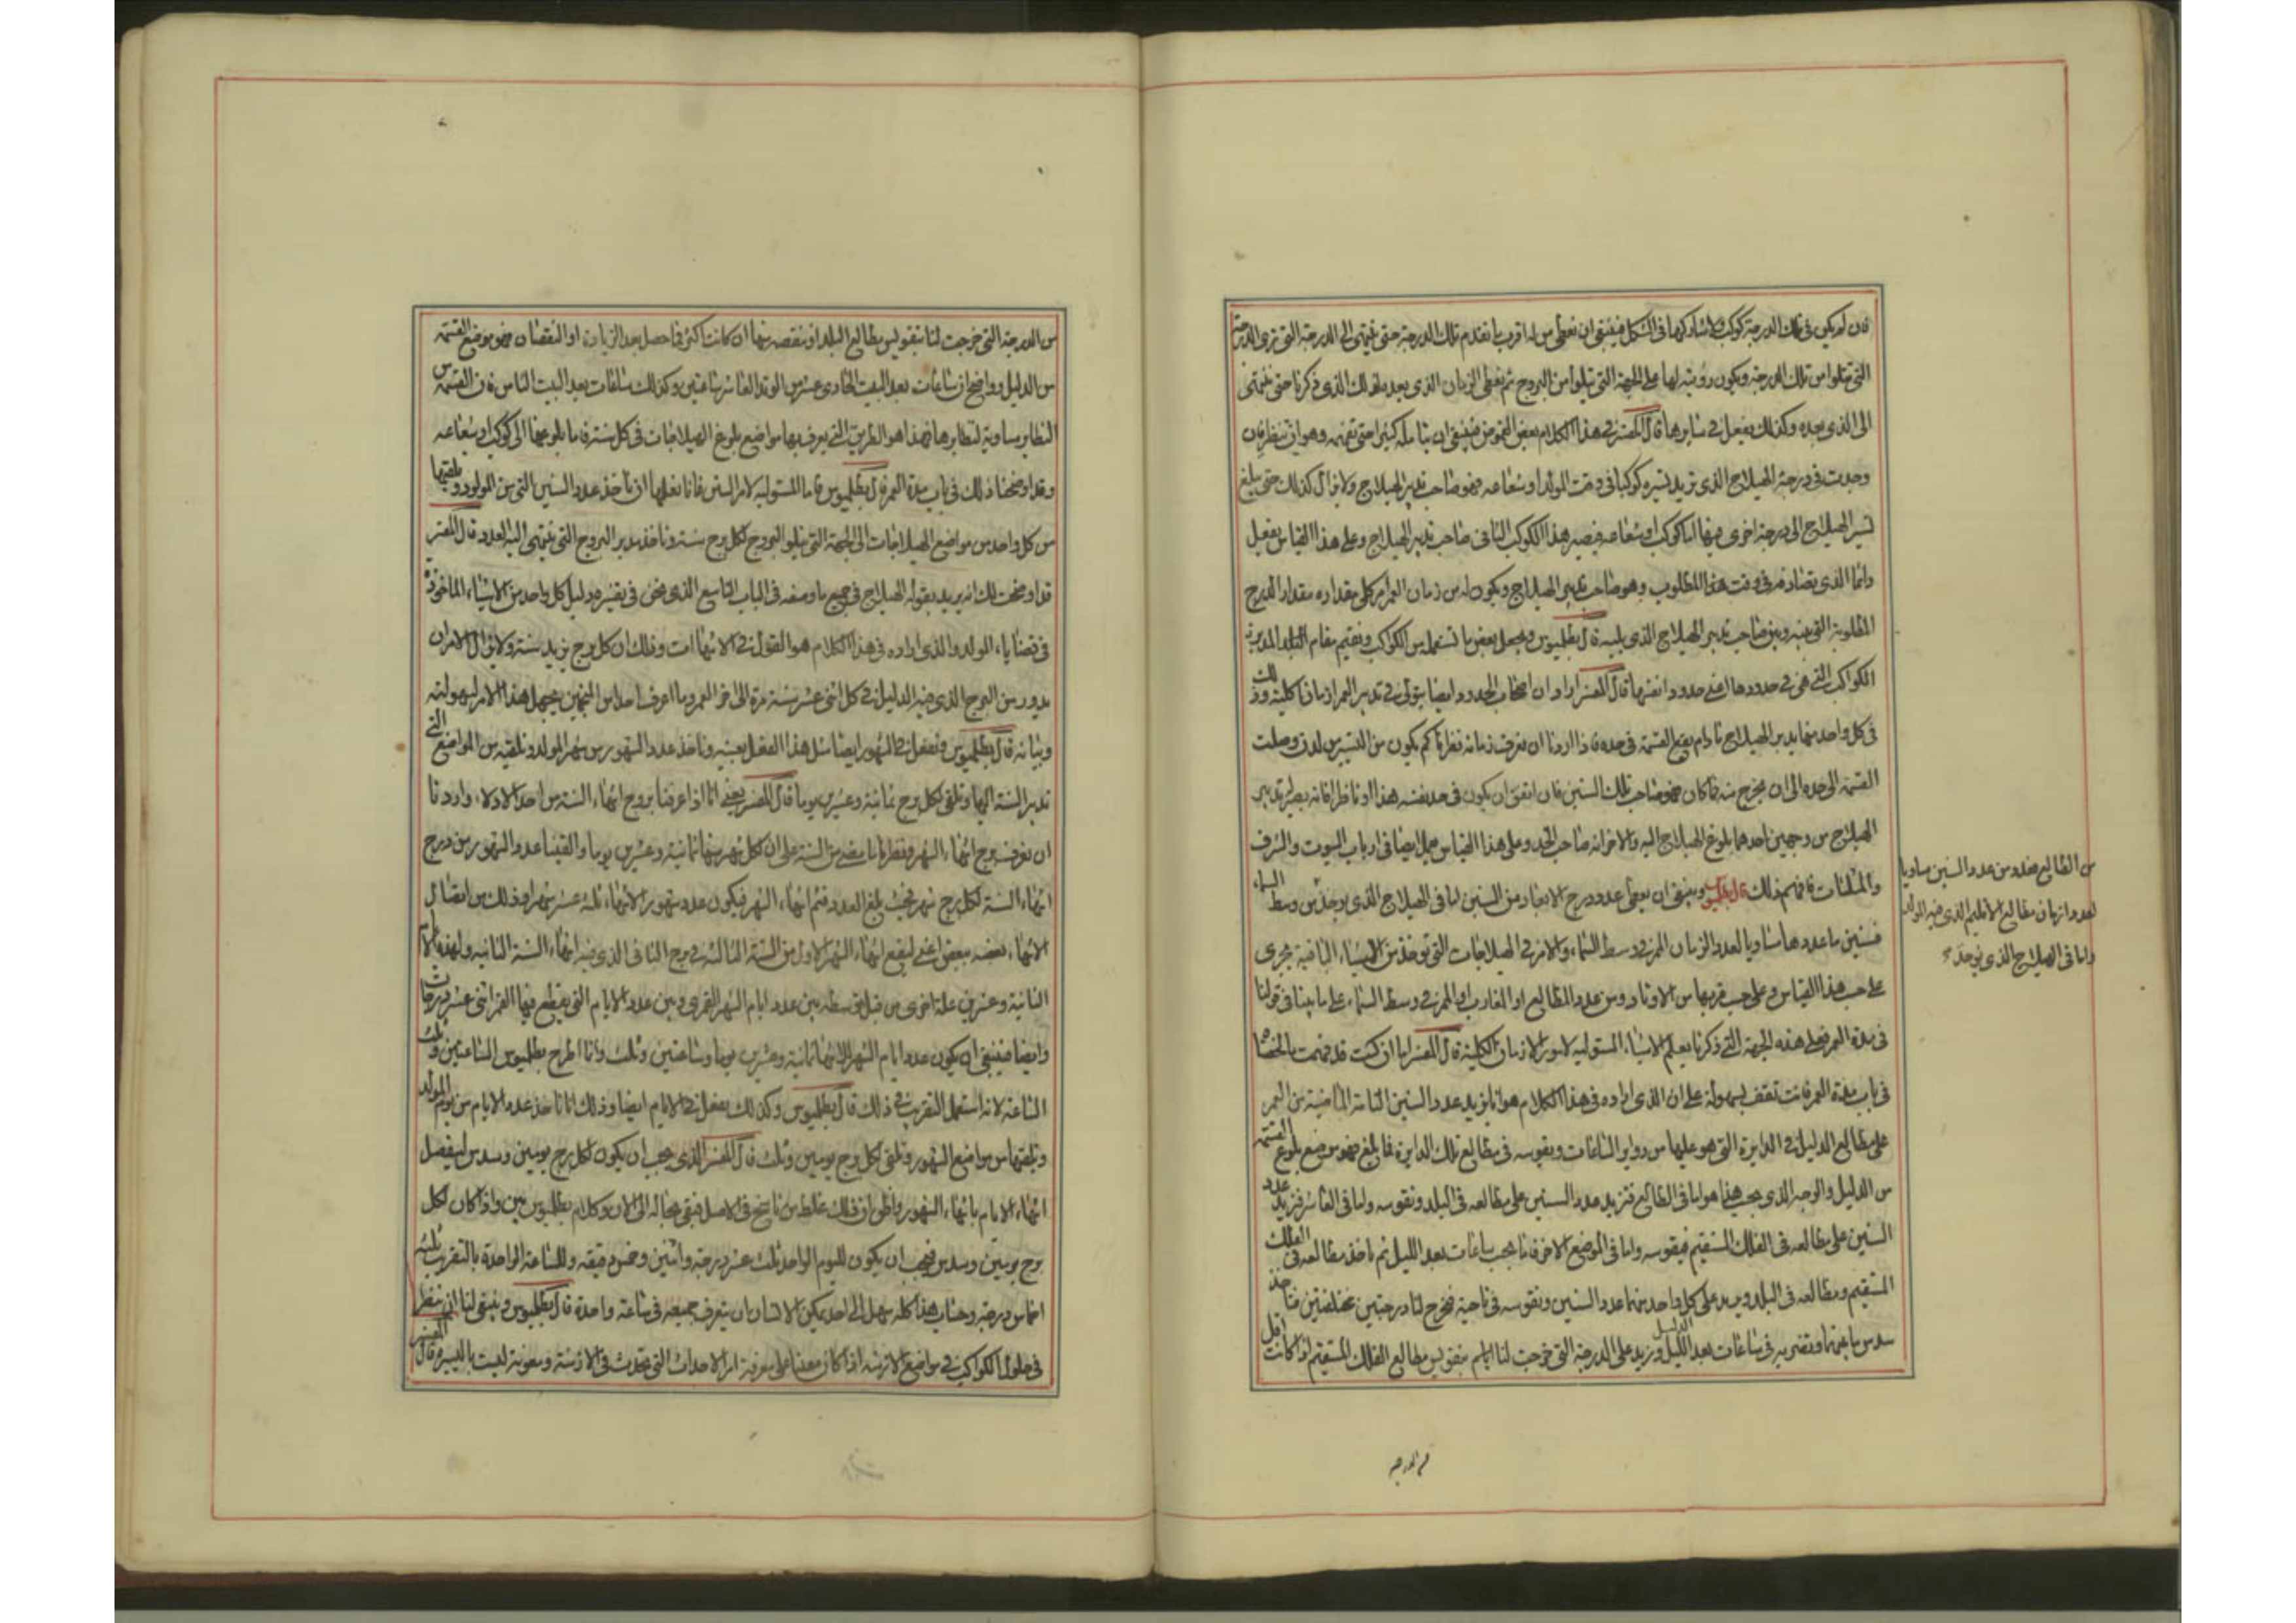 فان لم يكن في تلك الدرجة كوكب لا شاركها في الشكل فينبغي ان نعطي من له اقرب ما تقدم تلك الدرجة حتى ينتهي الى الدرجة التي ترى الدرجة
التي تتلوا من تلك الدرجة ويكون رؤيته لها على الجهة التي تتلوا من البروج ثم نعطي الزمان الذي بعد ذلك الذي ذكرنا حتى ينتهي
الى الذي بعده وكذلك يفعل في سايرها قال المفسر في هذا الكلام بعض الغموض فينبغي ان يتامله كثيرا حتى تفهمه وهو ان تنظر فان
وجدت في درجة الهيلاج الذي تريد تسيره كوكبا في وقت المولد او شعاعه فهو صاحب تدبير الهيلاج ولا يزال كذلك حتى يبلغ
تسير الهيلاج الى درجة اخرى فيها اما كوكب او شعاعه فيصير هذا الكوكب الثاني صاحب تدبير الهيلاج وعلى هذا القياس يفعل
دائما الذي تصادفه في وقت هذا المطلوب وهو صاحب تدبير الهيلاج ويكون له من زمان العمر كلي مقداره مقدار الدرج
المطلوبة التي بينه وبين صاحب تدبير الهيلاج الذي يليه قال بطلميوس ويجعل بعض ما تستعمله من الكواكب ونقيم مقام المدبرة
الكواكب التي هي في حدودها اعني حدود انفسها قال المفسر اراد ان اصحاب الحدود ايضا يتولى في تدبير العمر ازمانا كلية وذلك
في كل واحد منها يدبر الهيلاج ما دام يقع القسمة في حده فاذا اردنا ان نعرف زمانه نظرنا كم يكون من التسير من لدن وصلت
القسمة الى حده الى ان يخرج منه فما كان فهو صاحب تلك السنين فان اتفق ان يكون في حد نفسه هذا او ناظرا فانه يصير له تدبير
الهيلاج من وجهين احدهما بلوغ الهيلاج اليه والاخر انه صاحب الحد وعلى هذا القياس يعمل ايضا في ارباب البيوت والشرف
والمثلثات فافهم ذلك قال بطلميوس وينبغي ان يعطى عدد درج الابعاد من السنين اما في الهيلاج الذي يوجد من وسط السماء
فسنين ما عددها مساويا لعدد ازمان الممر في وسط السماء والامر في الهيلاجات التي توخذ من الاشياء الباقية يجري
على حسب هذا القياس وعلى حسب قربها من الاوتاد ومن عدد المطالع او المغارب او الممر في وسط السماء على ما بينا في قولنا
في مدة العمر فعلى هذه الجهة التي ذكرنا يعلم الاشياء المستولية لامور الازمان الكلية قال المفسر اما ان كنت قد فهمت ما لخصنا
في باب مدة العمر فانت تقف بسهولة على ان الذي اراده في هذا الكلام هو انا نزيد عدد السنين التامة الماضية من العمر
على مطالع الدليل في الدايرة التي هو عليها من دواير الساعات ونقوسه في مطالع تلك الدايرة فما بلغ فهو موضع بلوغ القسمة
من الدليل والوجه الذي يجب هذا هو اما في الطالع فنزيد عدد السنين على مطالعه في البلد ونقوسه واما في العاشر فنزيد عدد
السنين على مطالعه في الفلك المستقيم فنقوسه واما في الموضع الاخر فانا نحسب ساعات بعد الدليل ثم ناخذ مطالعه في الفلك
المستقيم ومطالعه في البلد ونزيد على كل واحد منهما عدد السنين ونقوسه في ناحيته فيخرج لنا درجتين مختلفتين فناخذ
سدس ما بينهما ونضربه في ساعات بعد الدليل ونزيد على الدرجة التي خرجت لنا بتقويس مطالع الفلك المستقيم اذا كانت اقل
من الطالع فعدد من عدد السنين مساويا
لعدد ازمان مطالع الاقليم الذي فيه المولد
واما في الهيلاج الذي يوجد
من الدرجة
من الدرجة التي خرجت لنا بتقويس مطالع البلد او ننقصه منها ان كانت اكثر فما حصل بعد الزيادة او النقصان فهو موضع القسمة
من الدليل وواضح ان ساعات بعد البيت الحادي عشر من الوتد العاشر ساعتين وكذلك ساعات بعد البيت الثامن فان القسمة من
النظاير مساوية لنظايرها فهذا هو الطريق التي يعرف بها مواضع بلوغ الهيلاجات في كل سنة فاما بلوغها الى كوكب او شعاعه
وقد اوضحنا ذلك في باب مدة العمر قال بطلميوس فاما المستولية لامر السنين فانا نعلمها ان ناخذ عدد السنين التي من المولد ونلقيها
من كل واحد من مواضع الهيلاجات الى الجهة التي يتلو البروج لكل برج سنة وناخذ مدبر البروج التي ينتهي اليه العدد قال المفسر
قد اوضحت لك انه يريد بقوله الهيلاج في جميع ما وصفه في الباب التاسع الذي نحن في تفسيره دليل كل واحد من الاشياء الماخوذة
في قضايا المولد والذي اراده في هذا الكلام هو القول في الانتهاءات وذلك ان كل برج يريد سنة ولا يزال الامر ان
يدور من البرج الذي فيه الدليل في كل اثني عشر سنة مرة الى اخر العمر وما اعرف احدا من المنجمين يجهل هذا الامر لسهولته
وبيانه قال بطلميوس ونفعل في الشهور ايضا مثل هذا الفعل بعينه وناخذ عدد الشهور من شهر المولد ونلقيه من المواضع التي
تدبر السنة اليها ونلقي لكل برج ثمانية وعشرين يوما قال المفسر يعني انا اذا عرفنا برج انتهاء السنة من احد الادلاء واردنا
ان نعرف برج انتهاء الشهر فنظرنا ما مضى من السنة على ان لكل شهر منها ثمانية وعشرين يوما والقينا عدد الشهور من درج
انتهاء السنة لكل برج شهر فحيث بلغ العدد فثم انتهاء الشهر فيكون عدد شهور الانتهاء ثلثة عشر شهرا وذلك من اتصال
الانتهاء بعضه ببعض اعني ليقع انتهاء الشهر الاول من السنة الثالثة في برج الثاني الذي فيه انتهاء السنة الثانية ولهذه الايام
الثمانية وعشرين علة اخرى من قبل توسطه بين عدد ايام الشهر القمري وبين عدد الايام التي يقطع فيها القمر اثنى عشر درجات
وايضا فينبغي ان يكون عدد ايام الشهر الانتهائية ثمانية وعشرين يوما وساعتين وثلث وانما اطرح بطلميوس الساعتين وثلث
الساعة لانه استعمل التقريب في ذلك قال بطلميوس وكذلك يفعل في الايام ايضا وذلك انا ناخذ عدد الايام من يوم المولد
ونلقيها من مواضع الشهور ونلقي لكل برج يومين وثلث قال المفسر الذي يجب ان يكون لكل برج يومين وسدس ليتصل
انتهاء الايام بانتهاء الشهور واظن ان ذلك غلط من ناسخ في الاصل فبقي بحاله الى الان وكلام بطلميوس بين واذا كان لكل
برج يومين وسدس فيجب ان يكون لليوم الواحد ثلث عشر درجة واثنين وخمس دقيقه وللساعة الواحدة بالتقريب ثلثة
اخماس درجة وحساب هذا كله سهل الى احد يمكن الانسان ان يتعرف جميعه في ساعة واحدة قال بطلميوس وينبغي لنا ان ننظر
في حلول الكواكب في مواضع الازمنة اذا كان معينا على معرفة امر الاحداث التي تحدث في الازمنة ومعونة ليست باليسيرة قال المفسر